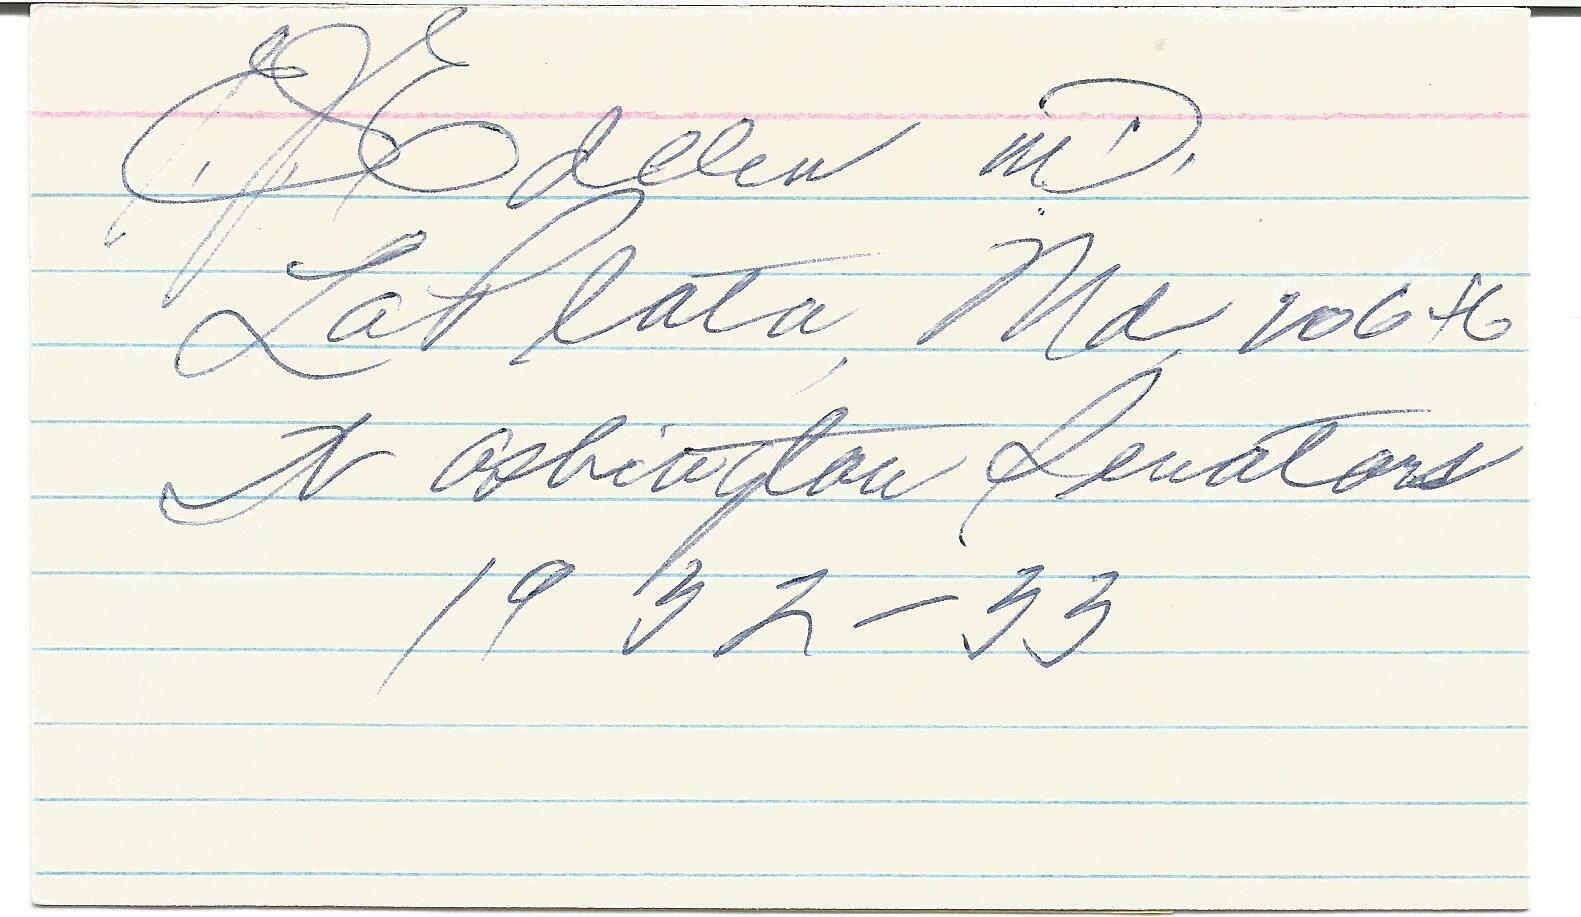 EJ Edelen MD.
La Plata, Md, 20646
Washington Senators
1932-33